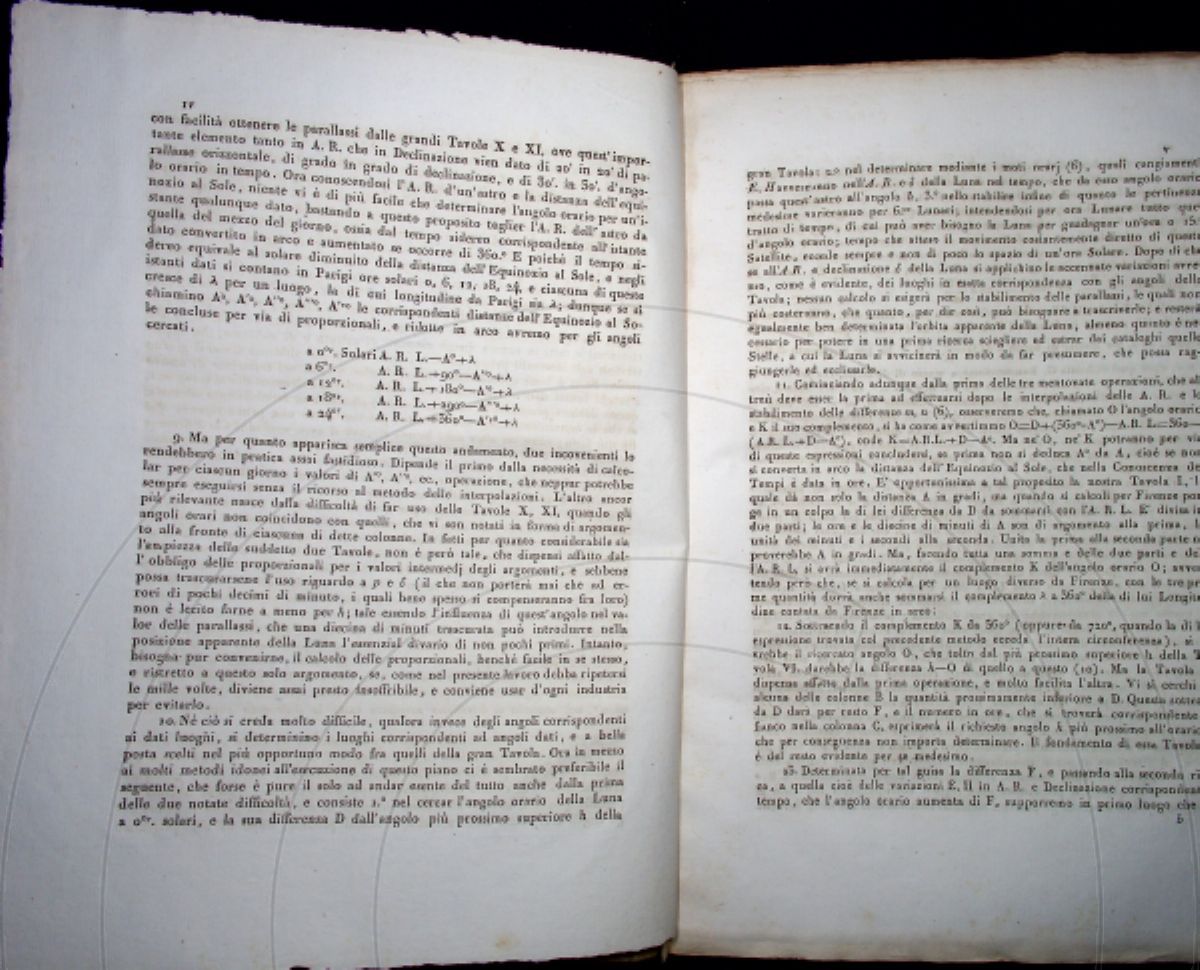 IV
con facilità ottenere le parallassi dalle grandi Tavole X e XI, ove quest'impor-
tante elemento tanto in A. R. che in Declinazione vien dato di 20' in 20' di pa-
rallasse orizzontale, di grado in grado di declinazione, e di 30'. in 30'. d'ango-
lo orario in tempo. Ora conoscendosi l'A. R. d'un'astro e la distanza dell'equi-
nozio al Sole, niente vi è di più facile che determinare l'angolo orario per un'i-
stante qualunque dato, bastando a questo proposito toglier l'A. R. dell'astro da
quella del mezzo del giorno, ossia dal tempo sidereo corrispondente all'istante
dato convertito in arco e aumentato se occorre di 360.° E poichè il tempo si-
dereo equivale al solare diminuito della distanza dell'Equinozio al Sole, e negli
istanti dati si contano in Parigi ore solari 0, 6, 12, 18, 24, e ciascuna di queste
cresce di λ per un luogo, la di cui longitudine da Parigi sia λ; dunque se si
chiamino le corrispondenti distanze dall'Equinozio al So-
le concluse per via di proporzionali, e ridotte in arco avremo per gli angoli
cercati.
a 0or. Solari A. R. L.—A°+λ
a 6or. A. R. L.+90°— +λ
a 12or. A. R. L.+180°— +λ
a 18or. A. R. L. +λ
a 24or. A. R. L.+360°— +λ
9. Ma per quanto apparisca semplice questo andamento, due inconvenienti lo
renderebbero in pratica assai fastidioso. Dipende il primo dalla necessità di calco-
lar per ciascun giorno i valori di ec., operazione, che neppur potrebbe
sempre eseguirsi senza il ricorso al metodo delle interpolazioni. L'altro ancor
più rilevante nasce dalla difficoltà di far uso delle Tavole X, XI, quando gli
angoli orari non coincidono con quelli, che vi son notati in forma di argomen-
to alla fronte di ciascuna di dette colonne. In fatti per quanto considerabile sia
l'ampiezza delle suddette due Tavole, non è però tale, che dispensi affatto dal-
l'obbligo delle proporzionali per i valori intermedj degli argomenti, e sebbene
possa trascurarsene l'uso riguardo a p e δ (il che non porterà mai che ad er-
rori di pochi decimi di minuto, i quali bene spesso si compenseranno fra loro)
non è lecito farne a meno per h; tale essendo l'influenza di quest'angolo nel va-
lor delle parallassi, che una diecina di minuti trascurata può introdurre nella
posizione apparente della Luna l'essenzial divario di non pochi primi. Intanto,
bisogna pur convenirne, il calcolo delle proporzionali, benchè facile in se stesso,
e ristretto a questo solo argomento, se, come nel presente lavoro debba ripetersi
le mille volte, diviene assai presto insoffribile, e conviene usar d'ogni industria
per evitarlo.
10. Nè ciò si creda molto difficile, qualora invece degli angoli corrispondenti
ai dati luoghi, si determinino i luoghi corrispondenti ad angoli dati, e a bella
posta scelti nel più opportuno modo fra quelli della gran Tavola. Ora in mezzo
ai molti metodi idonei all'esecuzione di questo piano ci è sembrato preferibile il
seguente, che forse è pure il solo ad andar esente del tutto anche dalla prima
delle due notate difficoltà, e consiste 1.° nel cercar l'angolo orario della Luna
a 0or. solari, e la sua differenza D dall'angolo più prossimo superiore h della
V
gran Tavola: 2.° nel determinare mediante i moti orarj (6), quali cangiamenti
E, H nell'A. R. e δ della Luna nel tempo, che da esso angolo orario
passa quest'astro all'angolo h, 3.° nello stabilire infine di quanto le pertinenze
medesime varieranno per 6.or Lunari; intendendosi per ora Lunare tutto quel
tratto di tempo, di cui può aver bisogno la Luna per guadagnar un'ora o 15.
d'angolo orario; tempo che atteso il movimento costantemente diretto di questo
Satellite, eccede sempre e non di poco lo spazio di un'ora Solare. Dopo di che
se all'A. R. e declinazione δ della Luna si applichino le accennate variazioni avre-
mo, come è evidente, dei luoghi in esatta corrispondenza con gli angoli della
Tavola; nessun calcolo si esigerà per lo stabilimento delle parallassi, le quali non
più costeranno, che quanto, per dir così, può bisognare a trascriverle; e resterà
egualmente ben determinata l'orbita apparente della Luna, almeno quanto è ne-
cessario per potere in una prima ricerca scegliere ed estrar dai cataloghi quelle
Stelle, a cui la Luna si avvicinerà in modo da far presumere, che possa rag-
giungerle ed ecclissarle.
11. Cominciando adunque dalla prima delle tre mentovate operazioni, che al-
tresì deve esser la prima ad effettuarsi dopo le interpolazioni delle A. R. e lo
stabilimento delle differenze m, n (6), osserveremo che, chiamato O l'angolo orario
e K il suo complemento, si ha come avvertimmo O=D+(360°-A°)—A.R. L=360—
(A.R.L.+D—A°), onde K=A.R.L.+D—A°. Ma ne' O, ne' K potranno per via
di queste espressioni concludersi, se prima non si deduca A° da A, cioè se non
si converta in arco la distanza dell'Equinozio al Sole, che nella Conoscenza de'
Tempi è data in ore. E' opportunissima a tal proposito la nostra Tavola I, la
quale dà non solo la distanza A in gradi, ma quando si calcoli per Firenze por-
ge in un colpo la di lei differenza da D da sommarsi con l'A. R. L. E' divisa in
due parti; le ore e le diecine di minuti di A son di argomento alla prima, le
unità dei minuti e i secondi alla seconda. Unita la prima alla seconda parte ne
proverebbe A in gradi. Ma, facendo tutta una somma e delle due parti e del-
l'A. R. L. si avrà immediatamente il complemento K dell'angolo orario O; avver-
tendo però che, se si calcola per un luogo diverso da Firenze, con le tre pri-
me quantità dovrà anche sommarsi il complemento λ a 360° della di lui Longitu-
dine contata da Firenze in arco:
12. Sottraendo il complemento K da 360° (oppure da 720°, quando la di lui
espressione trovata col precedente metodo ecceda l'intera circonferenza), si a-
vrebbe il ricercato angolo O, che tolto dal più prossimo superiore h della Ta-
vola VI. darebbe la differenza h—O di quello a questo (10). Ma la Tavola
dispensa affatto dalla prima operazione, e molto facilita l'altra. Vi si cerchi in
alcuna delle colonne B la quantità prossimamente inferiore a D. Questa sottratta
da D darà per resto F, e il numero in ore, che si troverà corrispondente
fianco nella colonna C, esprimerà il richiesto angolo h più prossimo all'orario
che per conseguenza non importa determinare. Il fondamento di essa Tavola
è del resto evidente per se medesimo.
13. Determinata per tal guisa la differenza F, e passando alla seconda ricer-
za, a quella cioè delle variazioni E, H in A. R. e Declinazione corrispondenti
tempo, che l'angolo orario aumenta di F, supporremo in primo luogo che
b